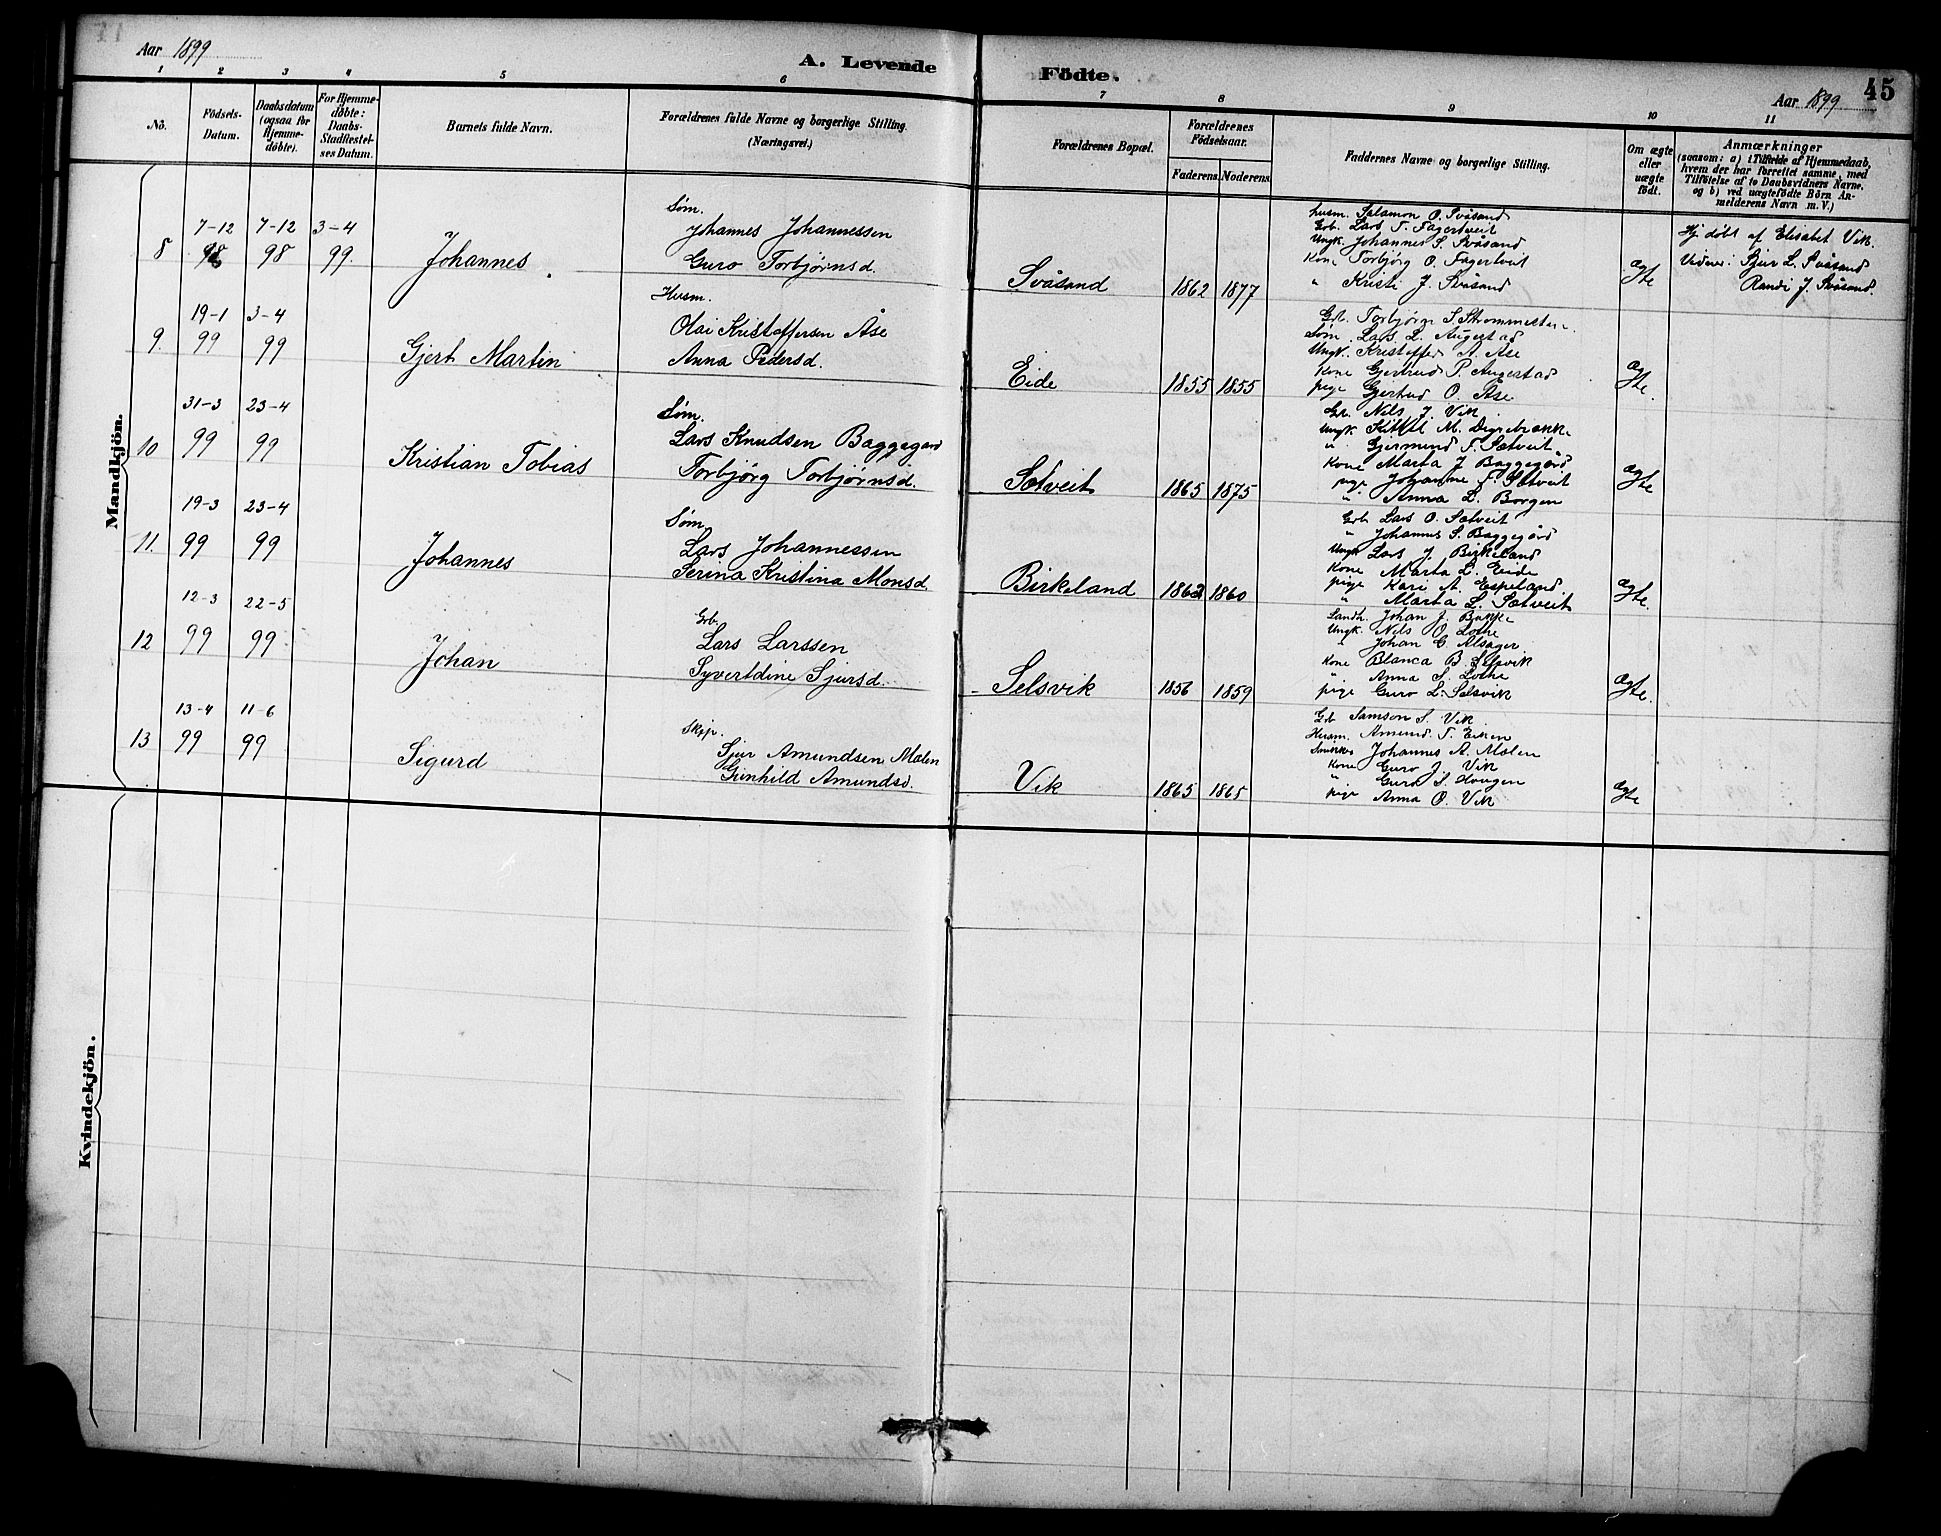 Aar 1899
A. Levende Födte.
Aar 1899
45
1 2 3 4 5 6 7 8 9 10 11
No.
Födsels-
Datum.
Daabsdatum
(ogsaa for
Hjemme-
döbte).
For Hjemme-
döbte:
Daabs-
Stadfæstel-
ses Datum.
Barnets fulde Navn.
Forældrenes fulde Navne og borgerlige Stilling.
(Næringsvei.)
Forældrenes Bopæl.
Forældrenes
Födselsaar.
Faderens. Moderens.
Faddernes Navne og borgerlige Stilling.
Om ægte
eller
uægte
födt.
Anmærkninger
(saasom: a) i Tilfælde af Hjemmedaab,
hvem der har forrettet samme, med
Tilföielse af to Daabsvidners Navne.
og b) ved uægtefödte Börn An-
melderens Navn m. V.)
Mandkjön.
8
7-12
98
7-12
98
3-4
99.
Johannes
Søm.
Johannes Johannessen
Guro Torbjørnsd.
Svåsand
1862
1877
Husm. Salamon O. Svåsand
Grb. Lars T. Fagertveit
Ungk. Johannes S. Svåsand
Kone Torbjørg O. Fagertveit
" Kristi J. Svåsand
Ægte
Hj døbt af Elisabet Vik.
Vidner: Sjur L. Svåsand
Randi J. Svåsand.
9.
19-1
99
3-4
99
Gjert Martin
Husm.
Olai Kristoffersen Åse
Anna Pedersd.
Eide
1855
1855
Grb. Torbjørn S. Strømmesten
Søm. Lars L. Augestad
Ungk. Kristoffer A. Åse
Kone Gjertrud P. Augestad
pige Gjertrud O. Åse
Ægte.
10
31-3
99
23-4
99
Kristian Tobias
Søm.
Lars Knudsen Baggegård
Torbjørg Torbjørnsd.
Sætveit
1865
1875
Grb. Nils J. Vik
Ungk. Kittil M. Digrebrække
" Gjermund F. Sætveit
Kone Marta J. Baggegård
pige Johanne F. Sætveit
" Anna L. Borgen
Ægte
11.
19-3
99
23-4
99
Johannes
Søm.
Lars Johannessen
Serina Kristina Monsd.
Birkeland
1862
1860
Grb. Lars O. Sætveit
" Johannes S. Baggegård
Ungk. Lars J. Birkeland
Kone Marta L. Eide
pige Kari A. Espeland
" Marta L. Sætveit
Ægte.
12
12-3
99
22-5
99
Johan
Grb.
Lars Larssen
Syvertdine Sjursd.
Selsvik
1856
1859
Landh. Johan J. Bakke
Ungk. Nils O. Lothe
" Johan G. Alsåger
Kone Blanca B. Selsvik
" Anna S. Lothe
pige Guro L. Selsvik
Ægte.
13
13-4
99
11-6
99
Sigurd
Skip.
Sjur Amundsen Mælen
Gunhild Amundsd.
Vik
1865
1865
Grb Samson S. Vik
Husm. Amund T. Eiken
Johannes A. Mælen
Kone Guro J. Vik
" Guro S. Haugen
pige Anna O. Vik
Ægte
Kvindekjön.